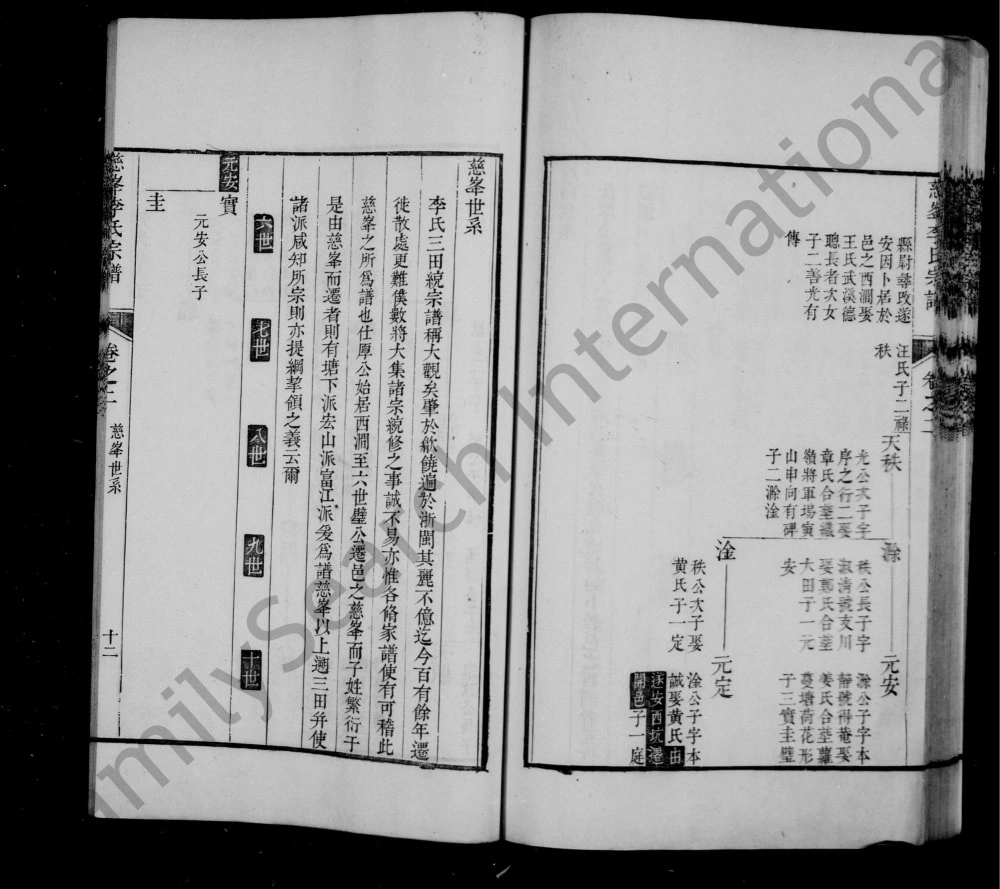 慈峯李氏宗譜
卷之二
縣尉尋改遂
安因卜居於
邑之西澗娶
王氏武溪德
聰長者次女
子二善光有
傳
汪氏子二祿
秩
天秩
光公次子字
序之行二娶
章氏合塟織
嶺將軍塲寅
山申向有碑
子二滁淦
滁
秩公長子字
淑清號支川
娶鄭氏合塟
大田子一元
安
元安
滁公子字本
靜號得菴娶
姜氏合塟蘿
蔓塘荷花形
子三實圭璧
淦
秩公次子娶
黄氏子一定
元定
淦公子字本
誠娶黄氏由
遂安西坑遷
開邑子一庭
慈峯世系
李氏三田統宗譜稱大觀矣肇於歙饒遍於浙閩其麗不億迄今百有餘年遷
徙散處更難僕數將大集諸宗統修之事誠不易亦惟各脩家譜使有可稽此
慈峯之所爲譜也仕厚公始居西澗至六世璧公遷邑之慈峯而子姓繁衍于
是由慈峯而遷者則有塘下派宏山派富江派爰爲譜慈峯以上遡三田弁使
諸派咸知所宗則亦提綱挈領之義云爾
六世
七世
八世
九世
十世
元安
實
元安公長子
圭
慈峯李氏宗譜
卷之二
慈峯世系
十二
FamilySearch International